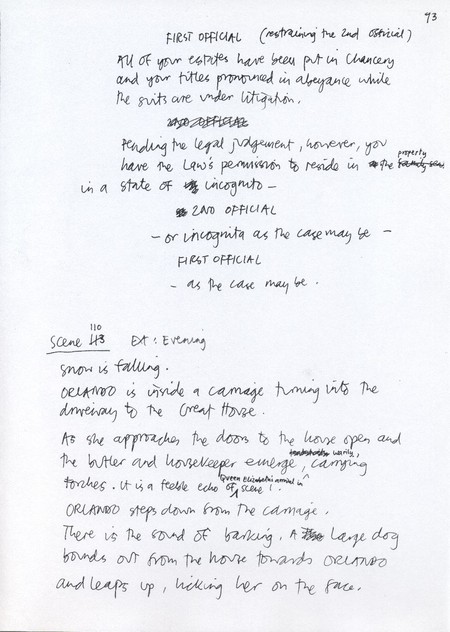 93
FIRST OFFICIAL (restraining the 2nd official)
All of your estates have been put in Chancery
and your titles pronounced in abeyance while
the suits are under litigation.
2ND OFFICIAL
Pending the legal judgement, however, you
property
have the Law's permission to reside in the
in a state of incognito —
2ND OFFICIAL
— or incognita as the case may be —
FIRST OFFICIAL
— as the case may be.
110
Scene 113 EXT: Evening
Snow is falling.
ORLANDO is inside a carriage turning into the
driveway to the Great House.
As she approaches the doors to the house open and
warily,
the butler and housekeeper emerge, carrying
Queen Elizabeth's arrival in
torches. It is a feeble echo of scene 1.
ORLANDO steps down from the carriage.
There is the sound of barking. A large dog
bounds out from the house towards ORLANDO
and leaps up, licking her on the face.